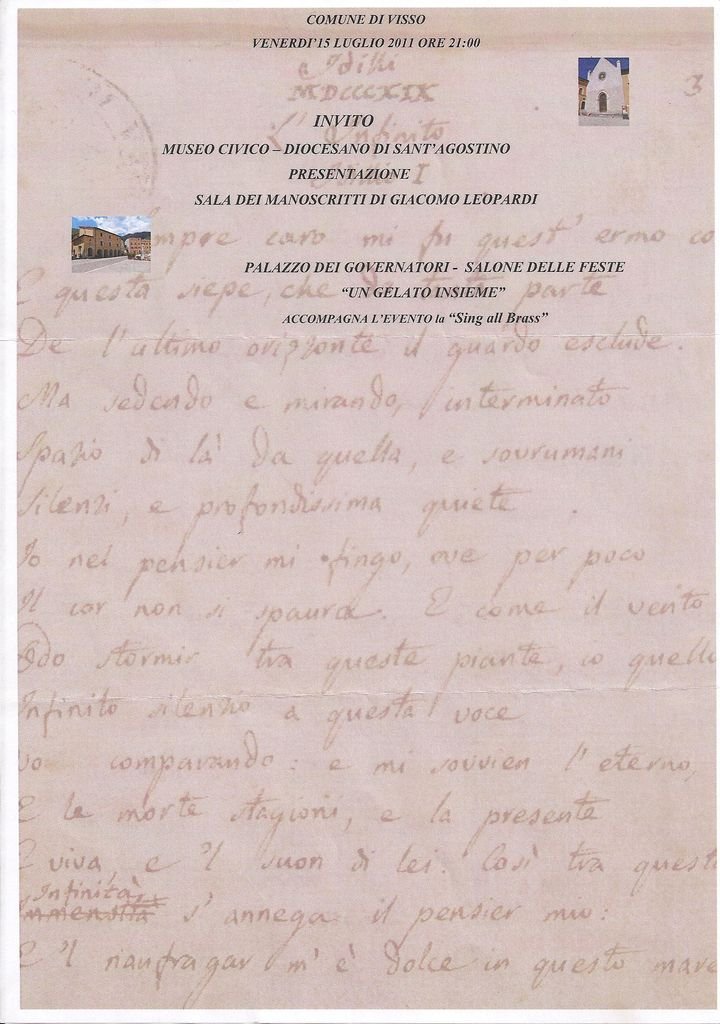 COMUNE DI VISSO
VENERDI'15 LUGLIO 2011 ORE 21:00
Idilli
MDCCCXIX
3
INVITO
L'Infinito
MUSEO CIVICO – DIOCESANO DI SANT'AGOSTINO
PRESENTAZIONE
I
SALA DEI MANOSCRITTI DI GIACOMO LEOPARDI
mpre caro mi fu quest' ermo co
PALAZZO DEI GOVERNATORI - SALONE DELLE FESTE
E questa siepe, che da tanta parte
"UN GELATO INSIEME"
ACCOMPAGNA L'EVENTO la "Sing all Brass"
De l'ultimo orizzonte il guardo esclude.
Ma sedendo e mirando, interminato
Spazio di là da quella, e sovrumani
Silenzi, e profondissima quiete
Io nel pensier mi fingo, ove per poco
Il cor non si spaura. E come il vento
Odo stormir tra queste piante, io quello
Infinito silenzio a questa voce
Vo comparando: e mi sovvien l'eterno,
E le morte stagioni, e la presente
E viva e 'l suon di lei. Così tra quest
Infinità
Immensità s'annega il pensier mio:
E 'l naufragar m'è dolce in questo mare